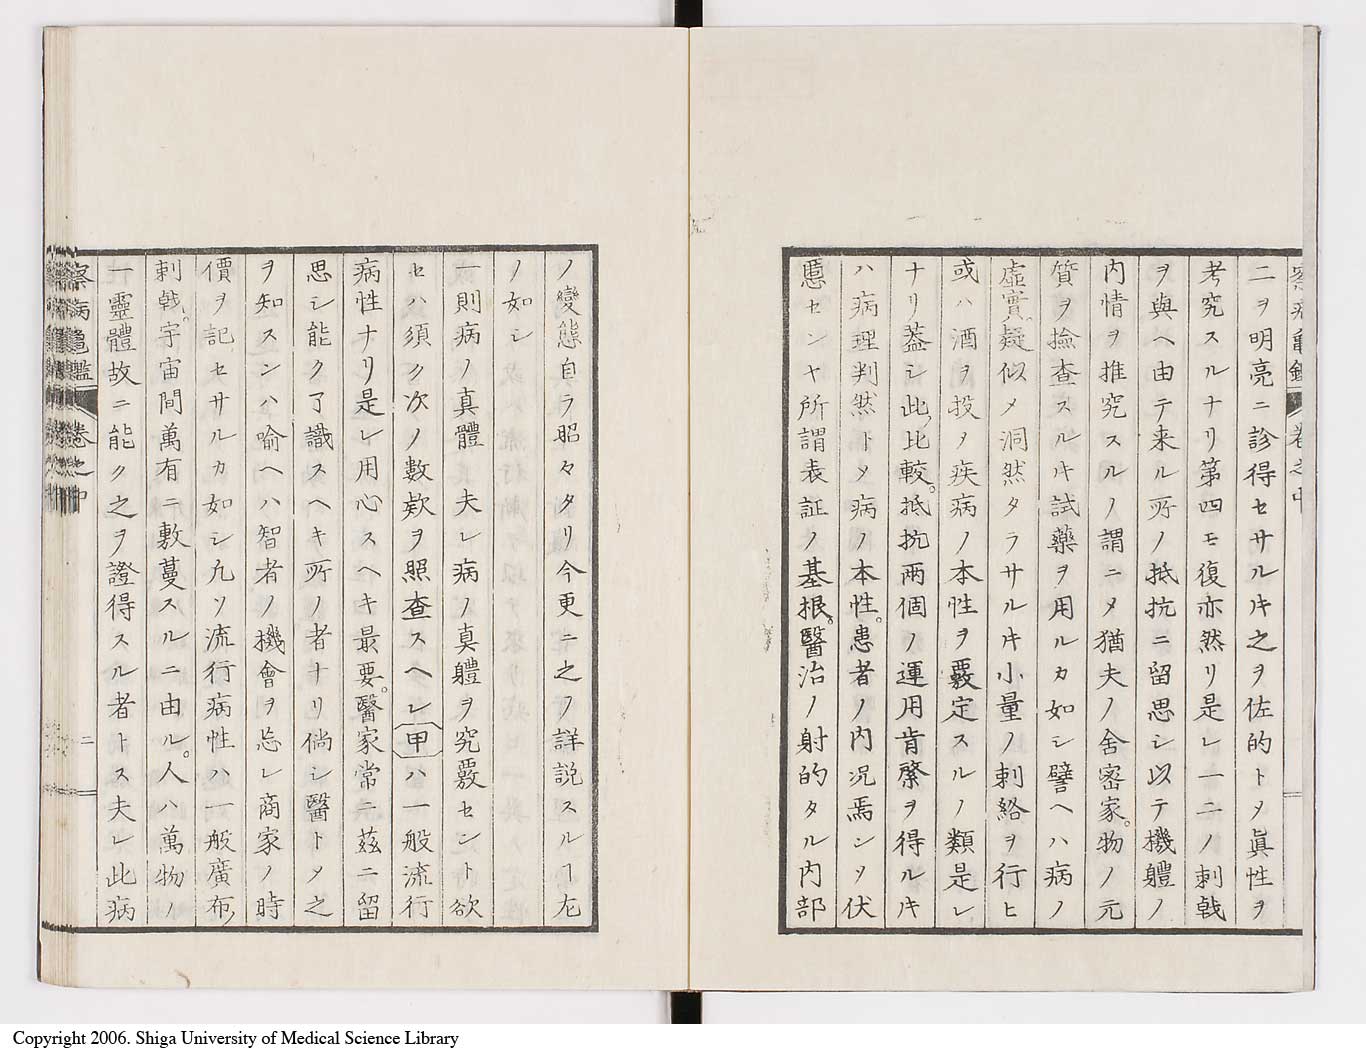 察病亀鑑 卷之中
二ヲ明亮ニ診得セサルキ之ヲ佐的トメ眞性ヲ
考究スルナリ第四モ復亦然リ是レ一二ノ刺戟
ヲ與ヘ由テ来ル所ノ抵抗ニ留思シ以テ機軆ノ
内情ヲ推究スルノ謂ニメ猶夫ノ舍密家物ノ元
質ヲ撿査スルキ試藥ヲ用ルカ如シ譬ヘハ病ノ
虛實疑似メ洞然タラサルキ小量ノ刺絡ヲ行ヒ
或ハ酒ヲ投メ疾病ノ本性ヲ覈定スルノ類是レ
ナリ蓋シ此比較抵抗兩個ノ運用肯綮ヲ得ルキ
ハ病理判然トメ病ノ本性患者ノ内况焉ンソ伏
慝センヤ所謂表証ノ基根醫治ノ射的タル内部
ノ變態自ラ昭々タリ今更ニ之ノ詳説スルヿ左
ノ如シ
一則病ノ真體 夫レ病ノ真軆ヲ究覈セント欲
セハ須ク次ノ數欵ヲ照査スヘレ甲ハ一般流行
病性ナリ是レ用心スヘキ最要醫家常ニ茲ニ留
思シ能ク了識スヘキ所ノ者ナリ倘シ醫トメ之
ヲ知スンハ喻ヘハ智者ノ機會ヲ忘レ商家ノ時
價ヲ記セサルカ如シ凡ソ流行病性ハ一般廣布
刺戟宇宙間萬有ニ敷蔓スルニ由ル人ハ萬物ノ
一靈體故ニ能ク之ヲ證得スル者トス夫レ此病
察病亀鑑 卷之中
二
Copyright 2006. Shiga University of Medical Science Library